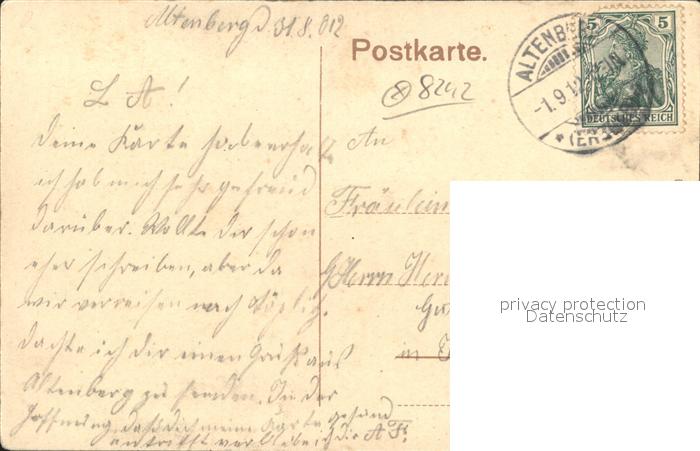 Altenberg d. 31.8.012
Postkarte.
8242
5 5
ALTENBERG
-1.9.12
(ERZ
DEUTSCHES REICH
L A!
Deine Karte habe erhalte
ich hab mich sehr gefreud
darüber. Wollte dir schon
eher schreiben, aber da
wir verreisen nach Töplitz.
dachte ich dir einen Gruß aus
Altenberg zu senden. In der
Hoffnung, daß dich meine Karte gesund
antrifft verbleibe ich die A F.
An
Fräulein
Herrn
in
privacy protection
Datenschutz